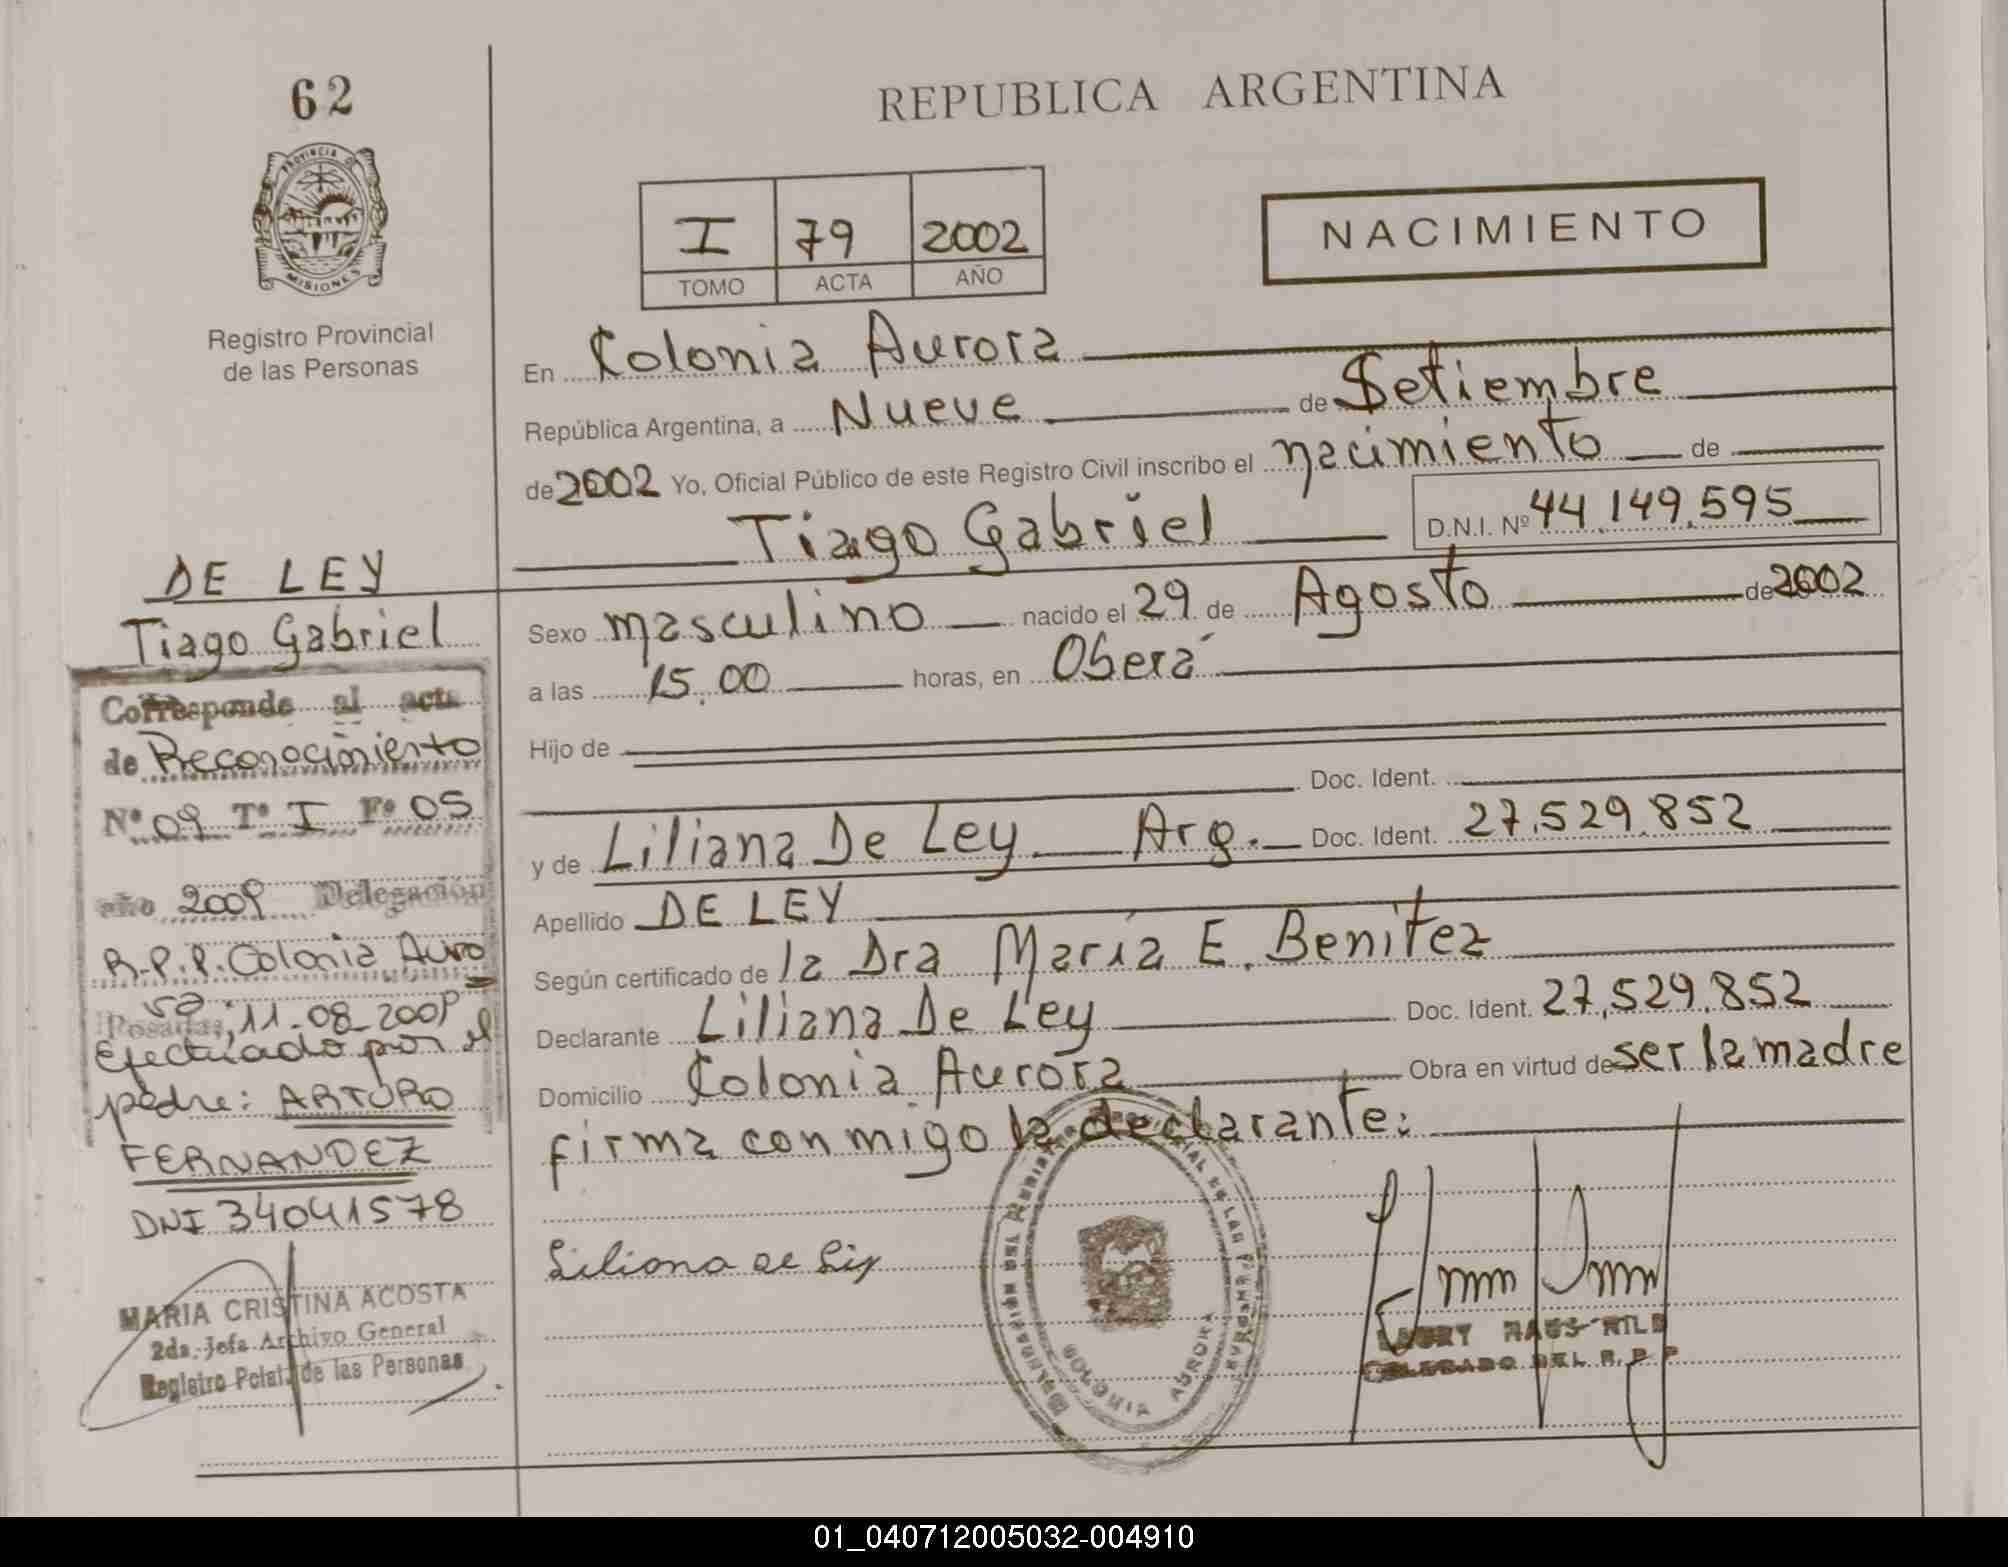 62
PROVINCIA DE
MISIONES
Registro Provincial
de las Personas
REPUBLICA ARGENTINA
I 79 2002
TOMO ACTA AÑO
NACIMIENTO
En Colonia Aurora
República Argentina, a Nueve de Setiembre
de 2002 Yo, Oficial Público de este Registro Civil inscribo el nacimiento de
Tiago Gabriel D.N.I. Nº 44.149.595
Sexo masculino nacido el 29 de Agosto de 2002
a las 15.00 horas, en Oberá
Hijo de
Doc. Ident.
y de Liliana De Ley Arg. Doc. Ident. 27.529.852
Apellido DE LEY
Según certificado de la Dra María E. Benitez
Declarante Liliana De Ley Doc. Ident. 27.529.852
Domicilio Colonia Aurora Obra en virtud de ser la madre
firma conmigo la declarante:
Liliana de Ley
COLONIA AURORA
DELEGADO DEL R. P. P
DE LEY
Tiago Gabriel
Corresponde al acta
de Reconocimiento
Nº 09 Tº I Fº 05
año 2009 Delegación
R.P.P. Colonia Auro
ra
Posadas, 11-08-2009
Efectuado por el
padre: ARTURO
FERNANDEZ
DNI 34041578
MARIA CRISTINA ACOSTA
2da. Jefa Archivo General
Registro Pcial. de las Personas
01_040712005032-004910